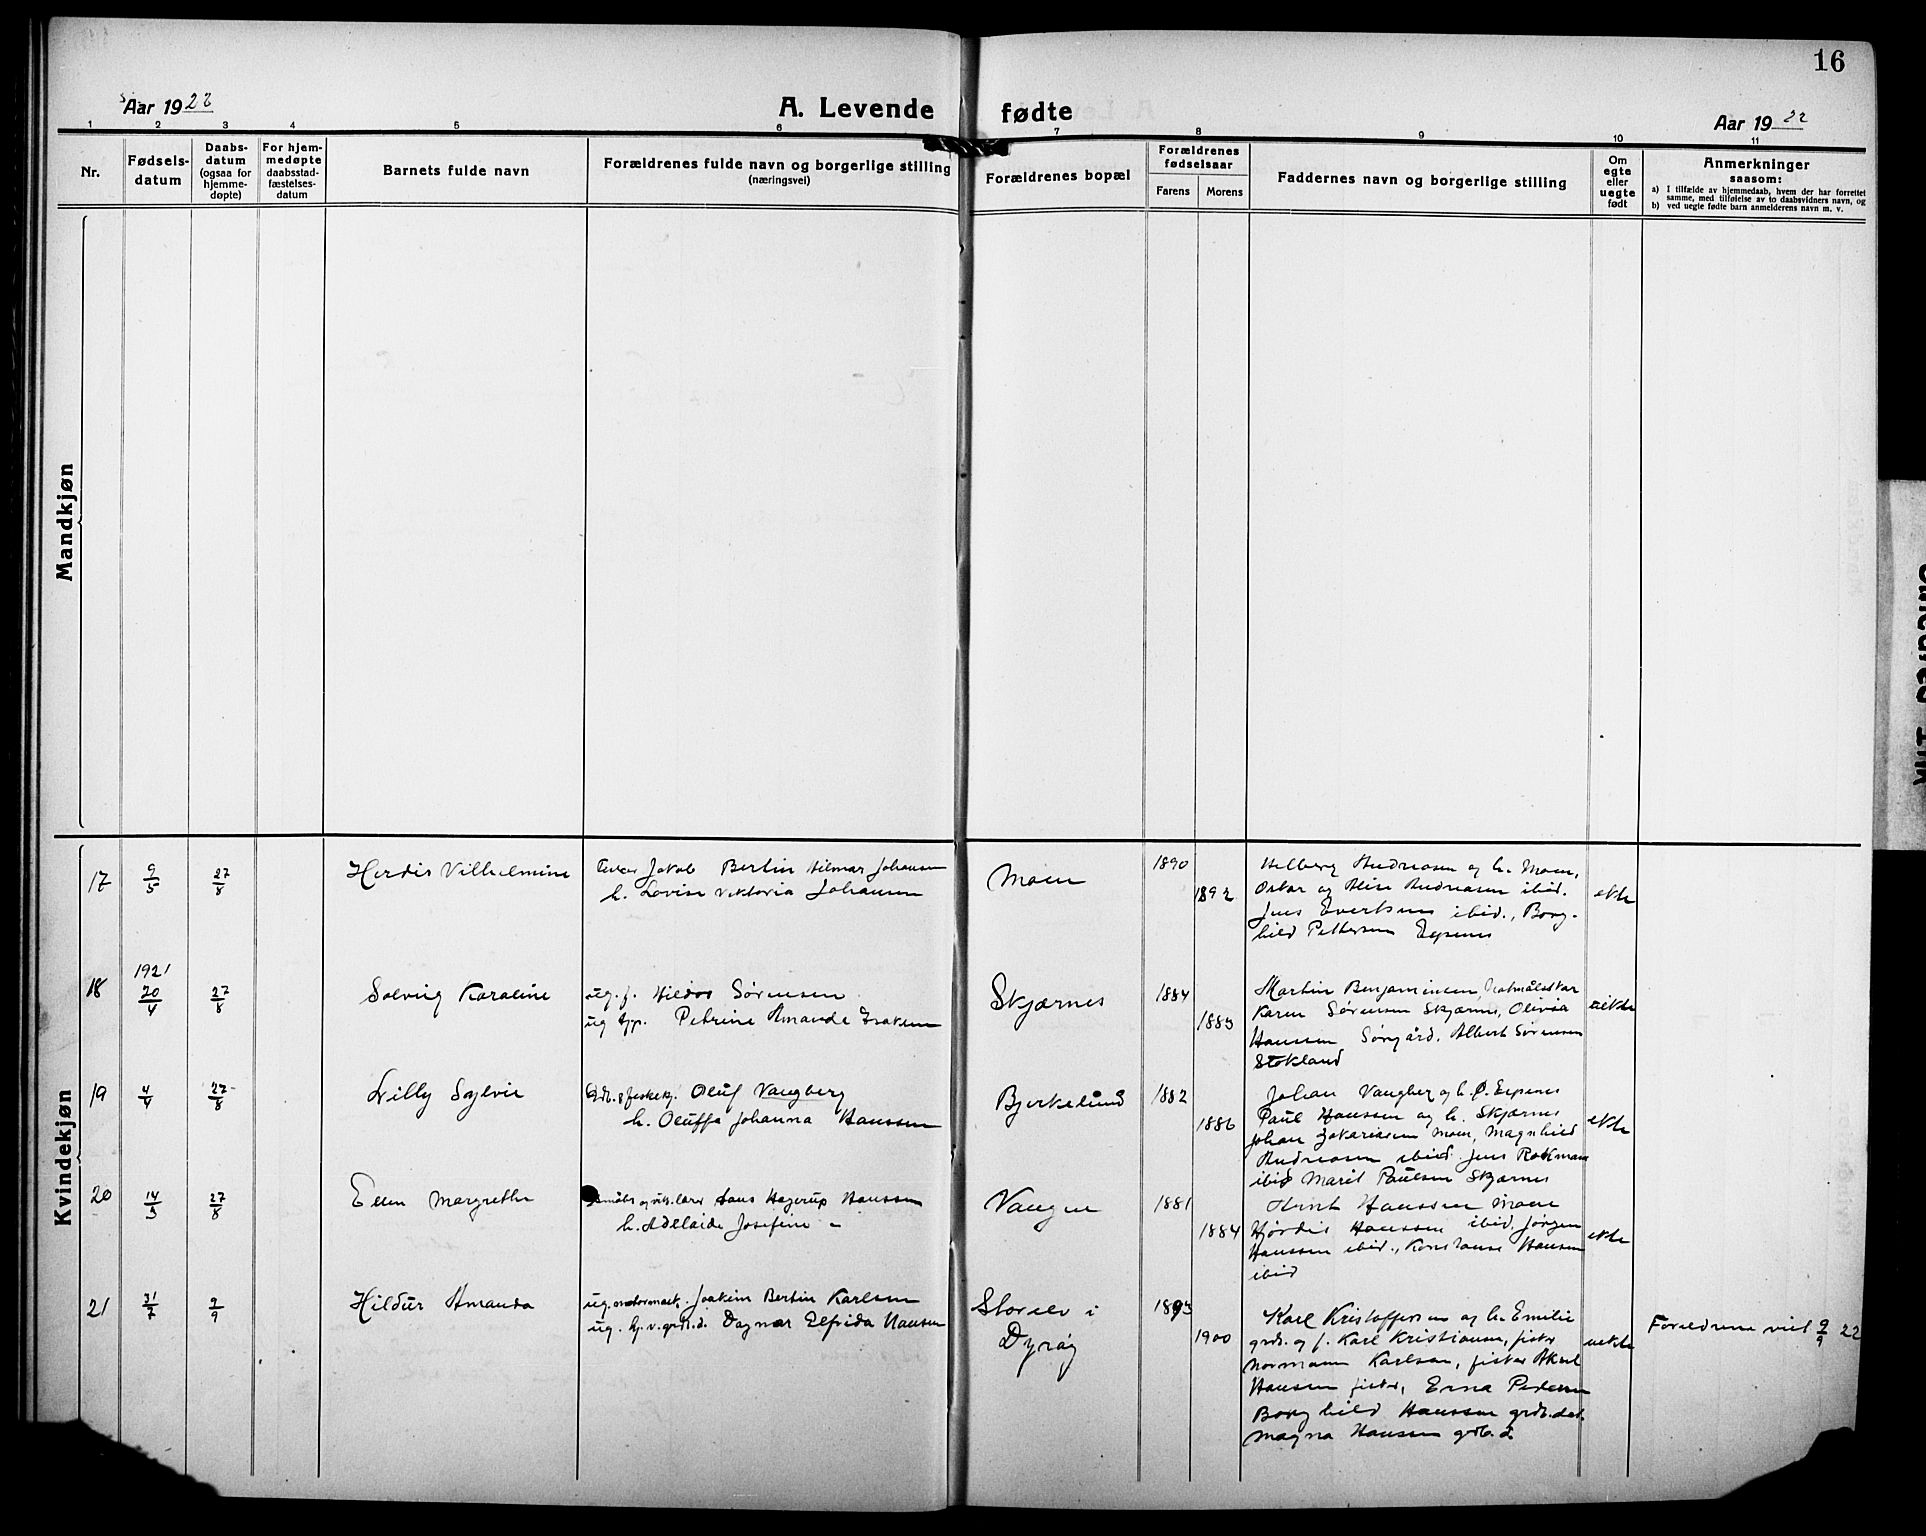 16
Aar 1922
A. Levende fødte
Aar 1922
1 2 3 4 5 6 7 8 9 10 11
Nr.
Fødsels-
datum
Daabs-
datum
(ogsaa for
hjemme-
døpte)
For hjem-
medøpte
daabsstad-
fæstelses-
datum
Barnets fulde navn
Forældrenes fulde navn og borgerlige stilling
(næringsvei)
Forældrenes bopæl
Forældrenes
fødselsaar
Farens Morens
Faddernes navn og borgerlige stilling
Om
egte
eller
uegte
født
Anmerkninger
saasom:
a) I tilfælde av hjemmedaab, hvem der har forrettet
samme, med tilføielse av to daabsvidners navn, og
b) ved uegte fødte barn anmelderens navn m. v.
Mandkjøn
Kvindekjøn
17
9/5
27/8
Herdis Vilhelmine
Jakob Bertin Hilmar Johansen
h. Lovise Viktoria Johansen
Moen
1890
1892
Andreasen og h. Moen,
Oskar og Alise Andreasen ibid.
Jens Evertsen ibid., Borg-
hild Pettersen Espenes
ekte
18
1921
20/4
27/8
Solveig Karoline
ug. f. Sørensen
ug tjp. Petrine Amanda Isaksen
Skjærnes
1884
1883
Martin Benjaminsen,
Karen Sørensen Skjærnes, Olivia
Hanssen Sørgård. Albert Sørensen
Stokland
uekte
19
4/4
27/8
Lilly Sylvie
Oluf Vangberg
h. Oluffa Johanna Hanssen
Bjerkelund
1882
1886
Johan Vangberg og h. Ø. Espenes
Paul Hanssen og h. Skjærnes
Johan Zakariasen Moen, Magnhild
Andreasen ibid. Jens
ibid Marit Paulsen Skjærnes
ekte
20
14/5
27/8
Ellen Margrethe
Hans Hagerup Hanssen
h. Adelaide Josefine –
Vangen
1881
1884
Hanssen Moen
Hjørdis Hanssen ibid, Jørgen
Hanssen ibid., Konstanse Hansen
ibid
ekte
21
31/7
9/9
Hildur Amanda
ug. Joakim Bertin Karlsen
ug. Dagnar Elfrida Hansen
Storelv i
Dyrøy
1893
1900
Karl Kristoffersen og h. Emilie
grdb. og f. Karl Kristiansen, fisker
Normann Karlsen, fisker Aksel
Hansen fisker, Erna Pedersen
Borghild Hanssen grdb.dat.
Magna Hansen grdb.d.
uekte
Foreldrene viet 9/9 22